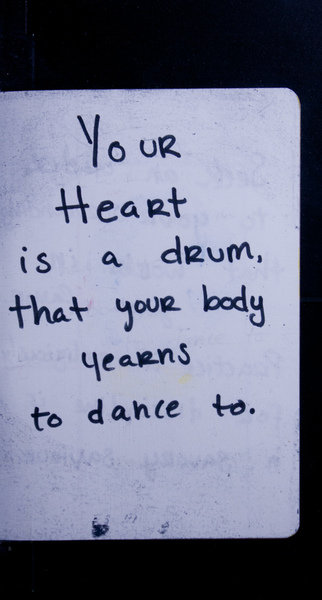 Your
Heart
is a drum,
that your body
yearns
to dance to.